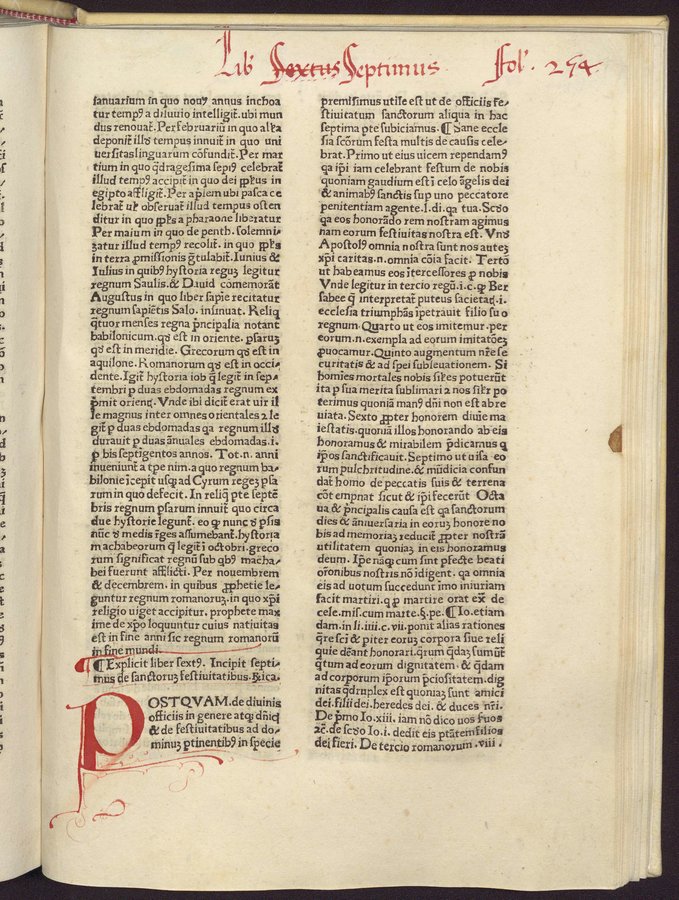 Lib Sextus Septimus Fol. 254.
ianuarium in quo nouꝰ annus inchoa
tur tempꝰ a diluuio intelligit̃. ubi mun
dus renouat̃. Per februariũ in quo alĩa
deponit̃ illđ tempus innuit̃ in quo uni
uersitas linguarum cõfundit̃. Per mar
tium in quo q̃dragesima sepiꝰ celebrat̃
illud tempꝰ accipit̃ in quo dei ꝑp̃lus in
egipto affligit̃. Per ap̃lem ubi pasca ce
lebrat̃ uł obseruat̃ illud tempus osten
ditur in quo ꝑp̃ls a pharaone liberatur
Per maium in quo de penth. solemni⸗
zatur illud tempꝰ recolit̃. in quo ꝑp̃ls
in terra ꝓmissionis g̃tulabit̃. Iunius &
Iulius in quibꝰ hystoria reguꝫ legitur
regnum Saulis. & Dauid comemorãt
Augustus in quo liber sapiẽ recitatur
regnum sapiẽtis Salo. insinuat. Reliq̃
q̃tuor menses regna p̃ncipalia notant
babilonicum. qđ est in oriente. ꝑsaruꝫ
qđ est in meridie. Grecorum qđ est in
aquilone. Romanorum qđ est in occi⸗
dente. Igit̃ hystoria iob q̃ legit̃ in sep⸗
tembri ꝑ duas ebdomadas regnum ex
p̃mit oriẽtꝭ. Vnde ibi dicit̃ erat uir il
le magnus inter omnes orientales ⁊ le
git̃ ꝑ duas ebdomadas qa regnum illđ
durauit ꝑ duas ãnuales ebdomadas. i.
ꝑ bis septigentos annos. Tot .n. anni
inueniunt̃ a tp̃e nim. a quo regnum ba⸗
bilonie ĩcepit usqꝫ ad Cyrum regeꝫ ꝑsa
rum in quo defecit. In reliq̃ pte septẽ
bris regnum ꝑsarum innuit̃ quo circa
due hystorie legunt̃. eo ꝙ nunc đ ꝑsis
nũc đ medis r̃ges assumebant̃. hystoria
machabeorum q̃ legit̃ ĩ octobri. greco
rum significat regnũ sub q̃bꝰ macha⸗
bei fuerunt afflicti. Per nouembrem
& decembrem. in quibus ꝓphetie le⸗
guntur regnum romanoruꝫ. in quo xp̃i
religio uiget accipitur. prophete max
ime de xp̃o loquuntur cuius natiuitas
est in fine anni sic regnum romanorũ
in fine mundi.
¶ Explicit liber sextꝰ. Incipit septi⸗
mus de sanctoruꝫ festiuitatibus. Rica.
POSTQVAM. de diuinis
officiis in genere atqꝫ dñicꝭ
& de festiuitatibus ad do⸗
minuꝫ ꝑtinentibꝰ in specie
premisimus utile est ut de officiis fe⸗
stiuitatum sanctorum aliqua in hac
septima pte subiciamus. ¶ Sane eccle
sia scõrum festa multis de causis cele⸗
brat. Primo ut eius uicem rependamꝰ
qa ip̃i iam celebrant festum de nobis
quoniam gaudium est ĩ celo ãgelis dei
& animabꝰ sanctis sup uno peccatore
penitentiam agente. l. di. qa tua. Scđo
qa eos honorãdo rem nostram agimus
nam eorum festiuitas nostra est. Vnđ
Apostolꝰ omnia nostra sunt nos auteꝫ
xp̃i caritas .n. omnia cõia facit. Tertõ
ut habeamus eos ĩtercessores ꝓ nobis
Vnde legitur in tercio regũ. i. c. ꝙ Ber
sabee q̃ interpretat̃ puteus societatꝭ. i.
ecclesia triumphãs ĩpetrauit filio suo
regnum. Quarto ut eos imitemur. per
eorum .n. exempla ad eorum imitatõeꝫ
ꝓuocamur. Quinto augmentum nr̃e se
curitatis & ad spei subleuationem. Si
homĩes mortales nobis siłes potuerũt
ita ꝑ sua merita sublimari ⁊ nos siłr po
terimus quoniã manꝰ dñi non est abre
uiata. Sexto ꝓpter honorem diuĩe ma
iestatis. quoniã illos honorando ab eis
honoramus & mirabilem p̃dicamus q̃
ip̃os sanctificauit. Septimo ut uisa eo
rum pulchritudine. & mũdicia confun
dat̃ homo de peccatis suis & terrena
cõtempnat sicut & ip̃i fecerũt Octa
ua & p̃ncipalis causa est qa sanctorum
dies & ãniuersaria in eoruꝫ honore no
bis ad memoriaꝫ reducit̃ ꝓpter nostrã
utilitatem quoniaꝫ in eis honoramus
deum. Ip̃e nãqꝫ cum sint ꝑfecte beati
or̃onibus nostris nõ ĩdigent. qa omnia
eis ad uotum succedunt imo iniuriam
facit martiri. q̃ ꝓ martire orat ex̃ de
cele. mis. cum marte. §. pe. ¶ Io. etiam
dam. in li. iiii. c. vii. ponit alias rationes
q̃re scĩ & piter eoruꝫ corpora siue reli
quie debẽant honorari. q̃rum q̃daꝫ sumũt̃
q̃tum ad eorum dignitatem. & q̃dam
ad corporum ip̃orum p̃ciositatem. dig
nitas q̃druplex est quoniaꝫ sunt amici
dei. filii dei. heredes dei. & duces nr̃i.
De p̃mo Io. xiii. iam nõ dico uos ẽuos
⁊c̃. de scđo Io. i. dedit eis ptãtem filios
dei fieri. De tercio romanorum. viii.